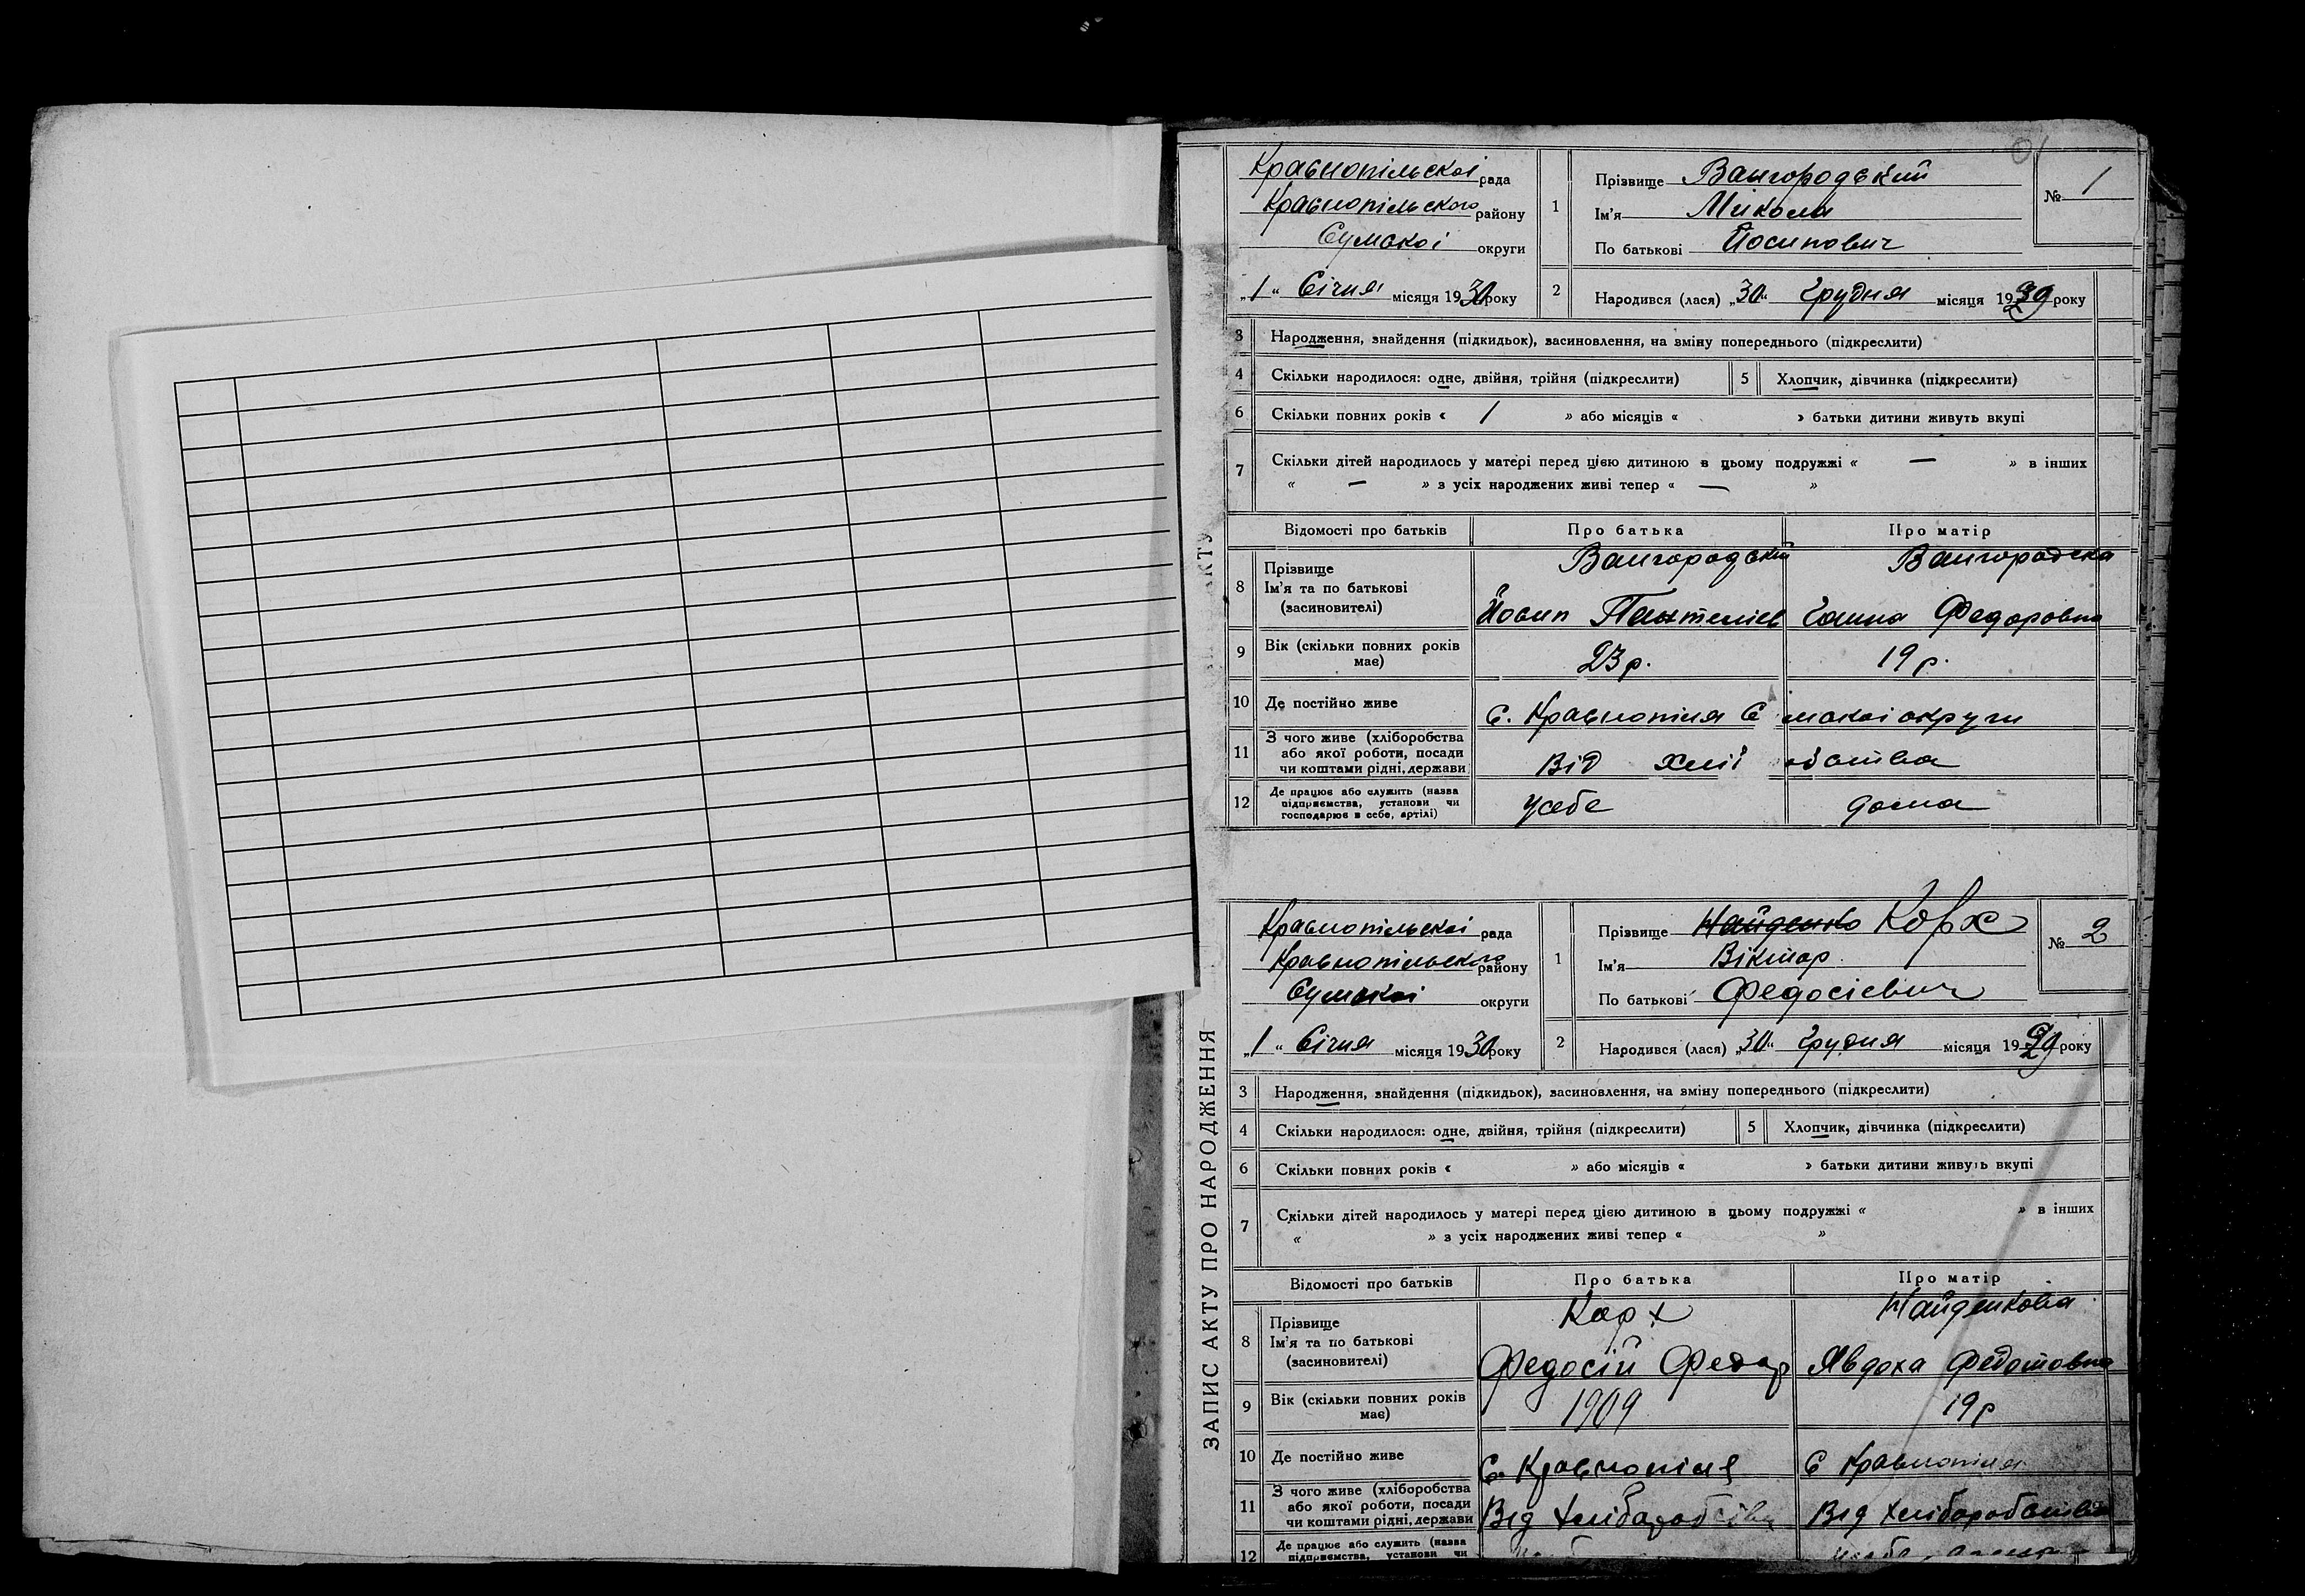 Краснопільскої рада
Краснопільского району
Сумскої округи
„1“ Січня місяця 1930 року
1
Прізвище Вангородський
Ім'я Микола
По батькові Йосипович
№ 1
2
Народився (лася) „30“ Грудня місяця 1929 року
3 Народження, знайдення (підкидьок), засиновлення, на зміну попереднього (підкреслити)
4 Скільки народилося: одне, двійня, трійня (підкреслити) 5 Хлопчик, дівчинка (підкреслити)
6 Скільки повних років « 1 » або місяців « » батьки дитини живуть вкупі
7 Скільки дітей народилось у матері перед цією дитиною в цьому подружжі « — » в інших
« — » з усіх народжених живі тепер « — »
Відомості про батьків Про батька Про матір
8 Прізвище
Ім'я та по батькові
(засиновителі)
Вангородський Вангородска
Йосип Пантеліев Ганна Федоровна
9 Вік (скільки повних років
має)
23 р. 19 р.
10 Де постійно живе с. Краснопілля С мскої округи
11 З чого живе (хліборобства
або якої роботи, посади
чи коштами рідні, держави
Від хліб обства
12 Де працює або служить (назва
підприємства, установи чи
господарює в себе, артілі)
усебе дома
АКТУ
ЗАПИС АКТУ ПРО НАРОДЖЕННЯ
Краснопільскої рада
Краснопільского району
Сумскої округи
„1“ Січня місяця 1930 року
1
Прізвище Найденко Корх
Ім'я Віктор
По батькові Федосієвич
№ 2
2
Народився (лася) „30“ Грудня місяця 1929 року
3 Народження, знайдення (підкидьок), засиновлення, на зміну попереднього (підкреслити)
4 Скільки народилося: одне, двійня, трійня (підкреслити) 5 Хлопчик, дівчинка (підкреслити)
6 Скільки повних років « » або місяців « » батьки дитини живуть вкупі
7 Скільки дітей народилось у матері перед цією дитиною в цьому подружжі « » в інших
« » з усіх народжених живі тепер « »
Відомості про батьків Про батька Про матір
8 Прізвище
Ім'я та по батькові
(засиновителі)
Корх Найденкова
Федосій Федор Явдоха Федотовна
9 Вік (скільки повних років
має)
1909 19 р
10 Де постійно живе с. Краснопілля с Краснопілля
11 З чого живе (хліборобства
або якої роботи, посади
чи коштами рідні, держави
Від хліборобства Від хліборобства
12 Де працює або служить (назва
підприємства, установи чи